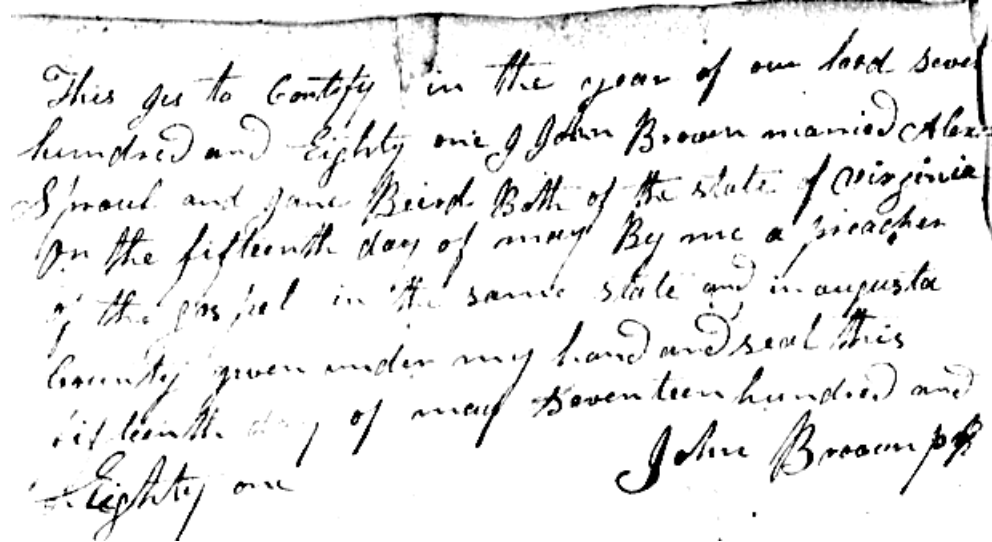 This gis to Contify in the year of our lord seven
hundred and Eighty one I John Brown married Alex
Sproul and Jane Beird Both of the state of Virginia
On the fifteenth day of may By me a preacher
of the gospel in the same state and in augusta
County given under my hand and seal this
fifteenth day of may seventeen hundred and
Eighty one John Brown